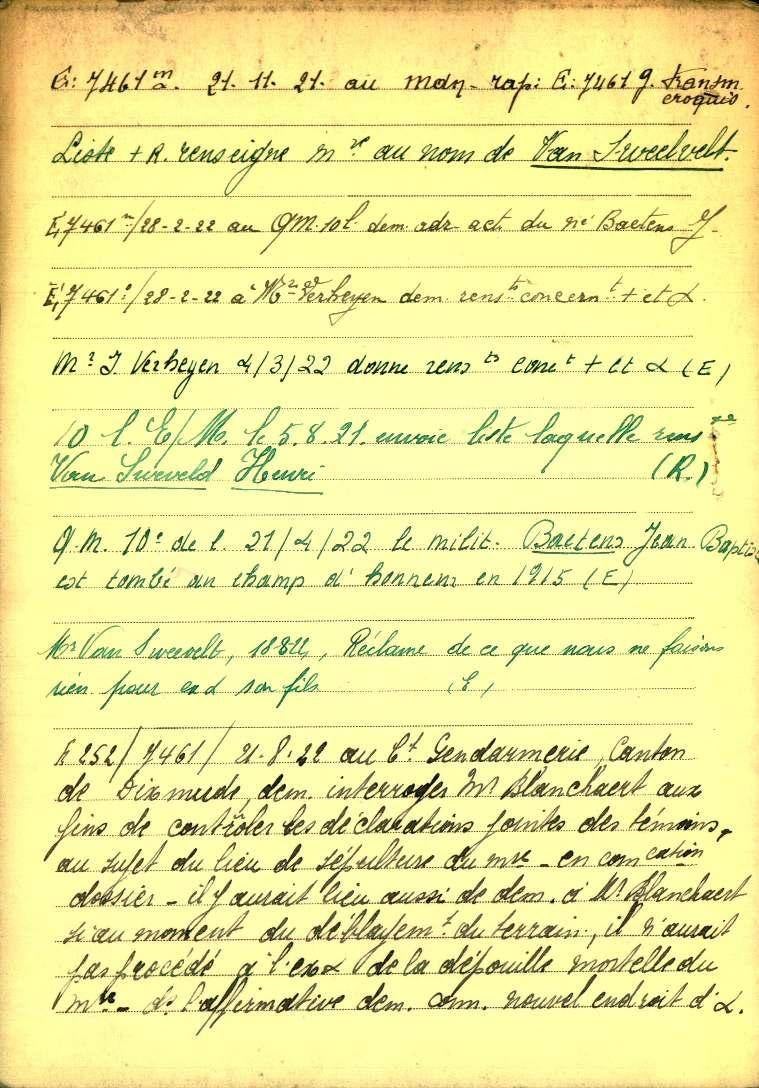 E: 7461 m/a. 21. 11. 21. au mdn. rap: E: 7461 g. Transm.
croquis.
Liste + R. renseigne mre au nom de Van Sweelvelt.
E, 7461 n/28-2-22 au QM. 10 l. dem. adr act. du né Baetens J.
E, 7461 o/28-2-22 à Mr Verheyen dem. rensts concernt + et α.
Mr J. Verheyen 4/3/22 donne rensts conct + et α (E)
10 l. E/M. le 5.8.21. envoie liste laquelle rensgne
Van Sweveld Henri (R.)
Q.M. 10e de l. 21/4/22 le milit. Baetens Jean Baptis
est tombé au champ d'honneur en 1915 (E)
Mr Van Sweevelt, Réclame de ce que nous ne faisons
rien pour exα son fils (E,
E 252/7461/ 21-8-22 au Ct Gendarmerie, Canton
de Dixmude, dem. interroger Mr Blanchaert aux
fins de contrôler les déclarations jointes des témoins,
au sujet du lieu de sépulture du mre - en comcation
dossier - il y aurait lieu aussi de dem. à Mr Blanchaert
si au moment du déblayemt. du terrain, il n'aurait
pas procédé à l'exα de la dépouille mortelle du
mre - ds l'affirmative dem. conn. nouvel endroit d'α.